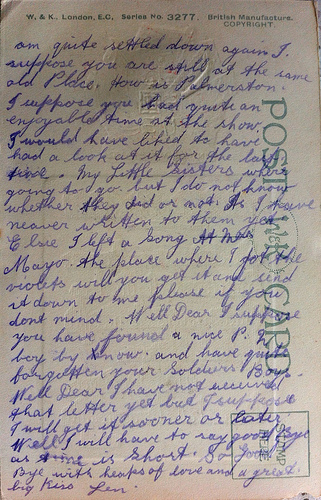 W. & K., London, E.C, Series No. 3277. British Manufacture.
COPYRIGHT.
am quite settled down again I.
suppose you are still at the same
old Place. How is Palmeraton.
I suppose you had quite an
enjoyable time at the show.
I would have liked to have
had a look at it for the last
time. My Little Sisters where
going to go. but I do not know
whether they did or not. As I have
neaver written to them yet
Elsie I left a Song At Mrs
Mayo. the place where I got the
violets will you get it and send
it down to me please if you
dont mind. Well Dear I suppose
you have found a nice P. H
boy by know. and have quit
forgotten your Soldier Boy.
Well Dear I have not received
that letter yet but I suppose
I will get it sooner or later.
Well I will have to say good Bye
as time is Short. So Good
Bye with heaps of love and a great.
big Kiss Len.
POST CARD
STAMP
HERE